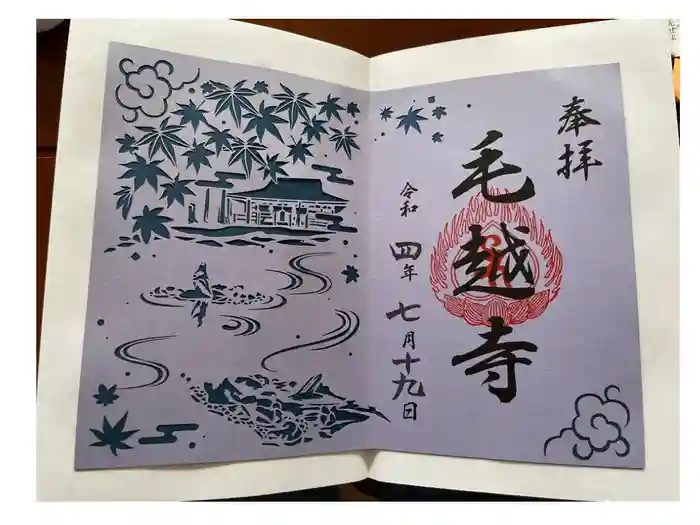 奉拝
毛越寺
令和四年七月十九日